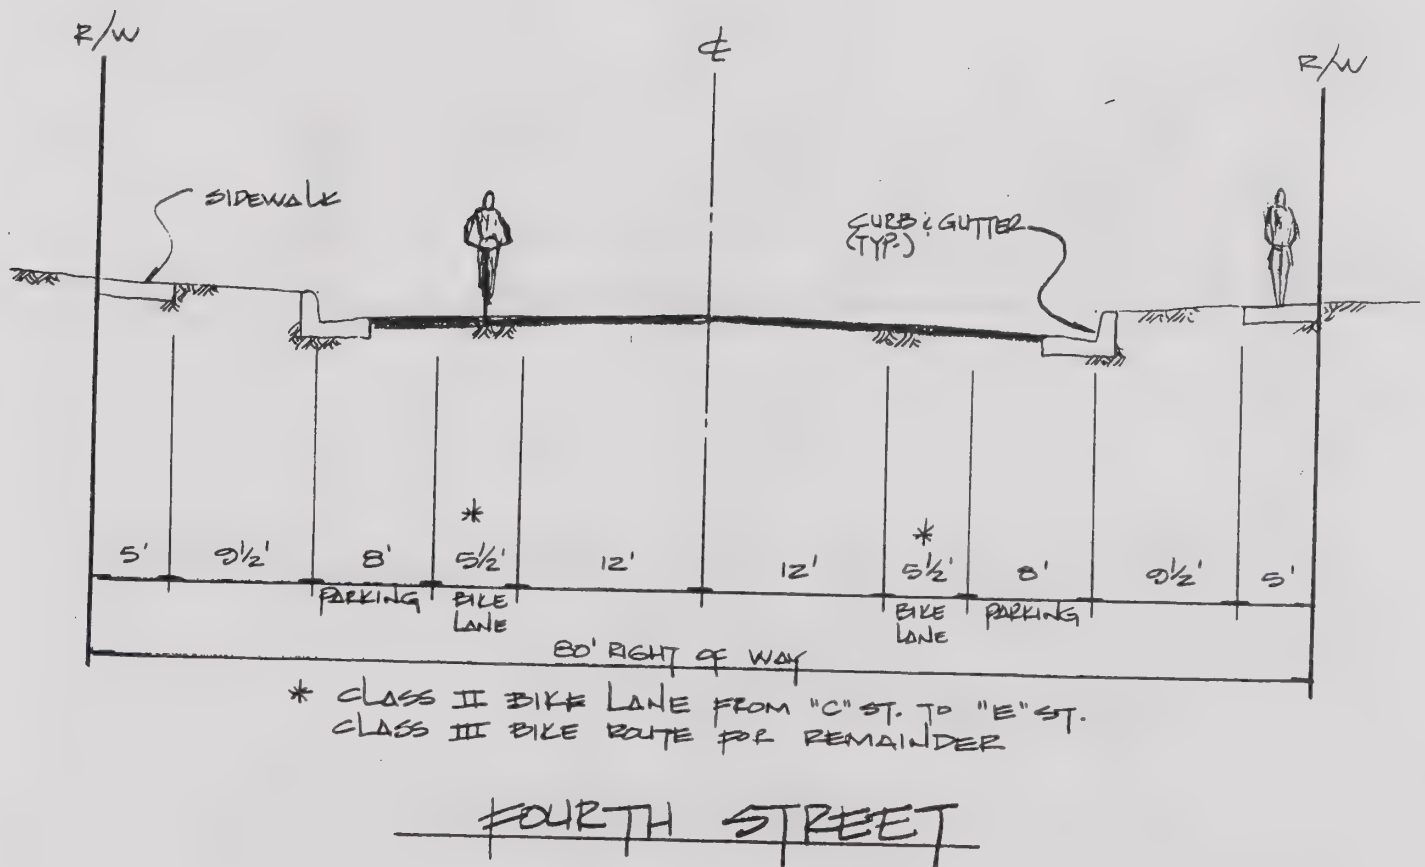 R/W
℄
R/W
SIDEWALK
CURB & GUTTER
(TYP.)
*
*
5' 9½' 8' 5½' 12' 12' 5½' 8' 9½' 5'
PARKING BIKE LANE BIKE LANE PARKING
80' RIGHT OF WAY
* CLASS II BIKE LANE FROM "C" ST. TO "E" ST.
CLASS III BIKE ROUTE FOR REMAINDER
FOURTH STREET